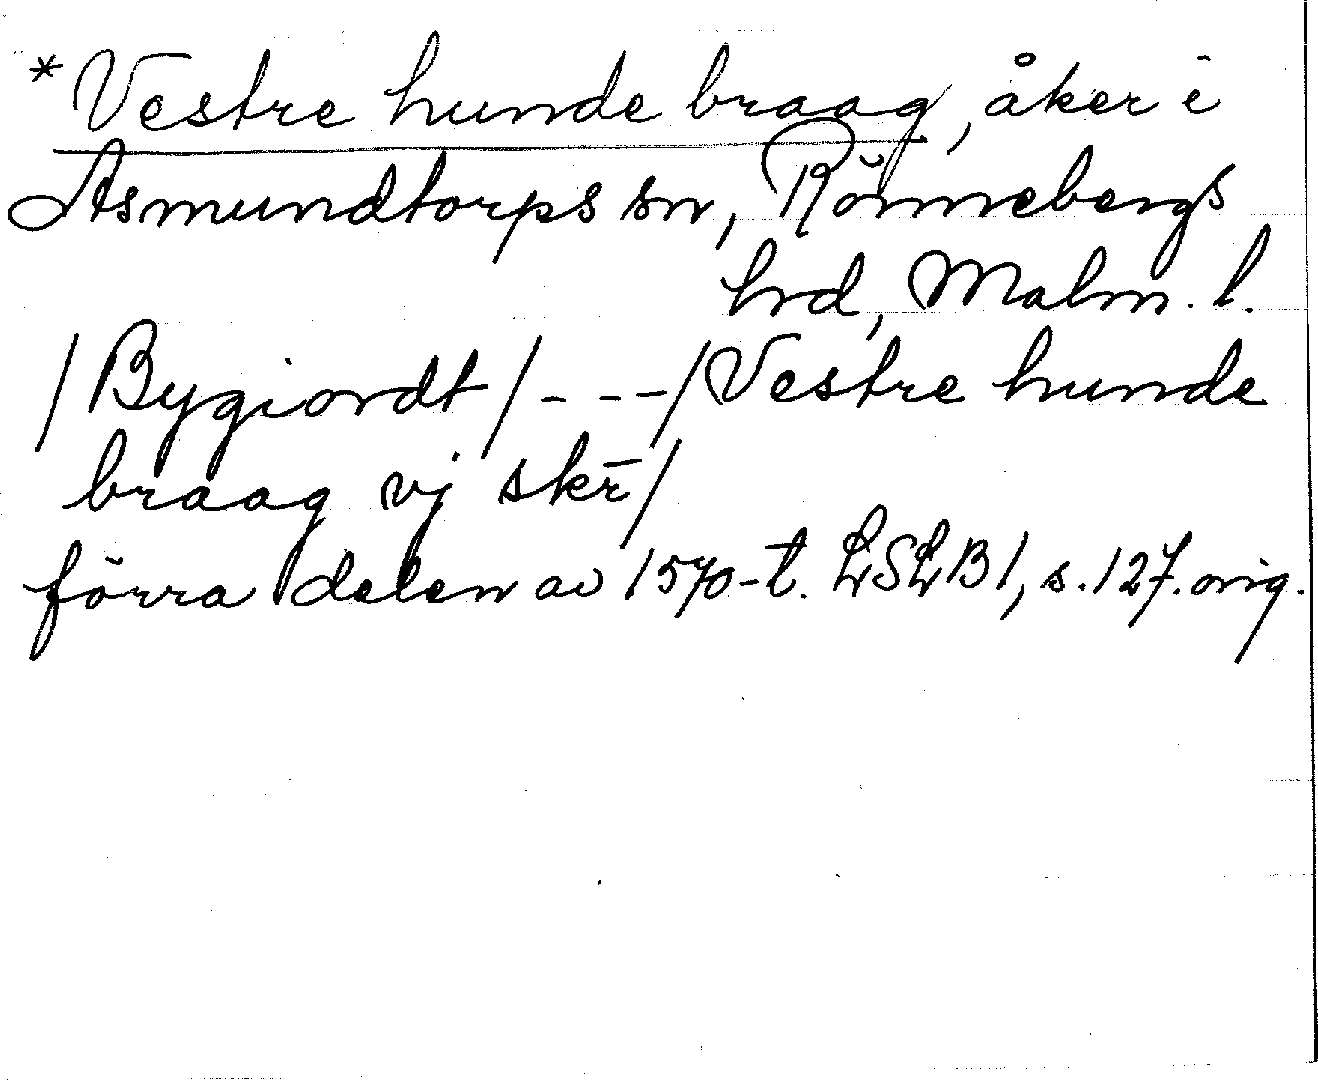 *Vestre hunde braag, åker i
Asmundtorps sn, Rönnebergs
hrd, Malm. l.
/Bygiordt/---/Vestre hunde
braag vj skr̄/
förra delen av 1570-t. LSLB1, s. 127. orig.